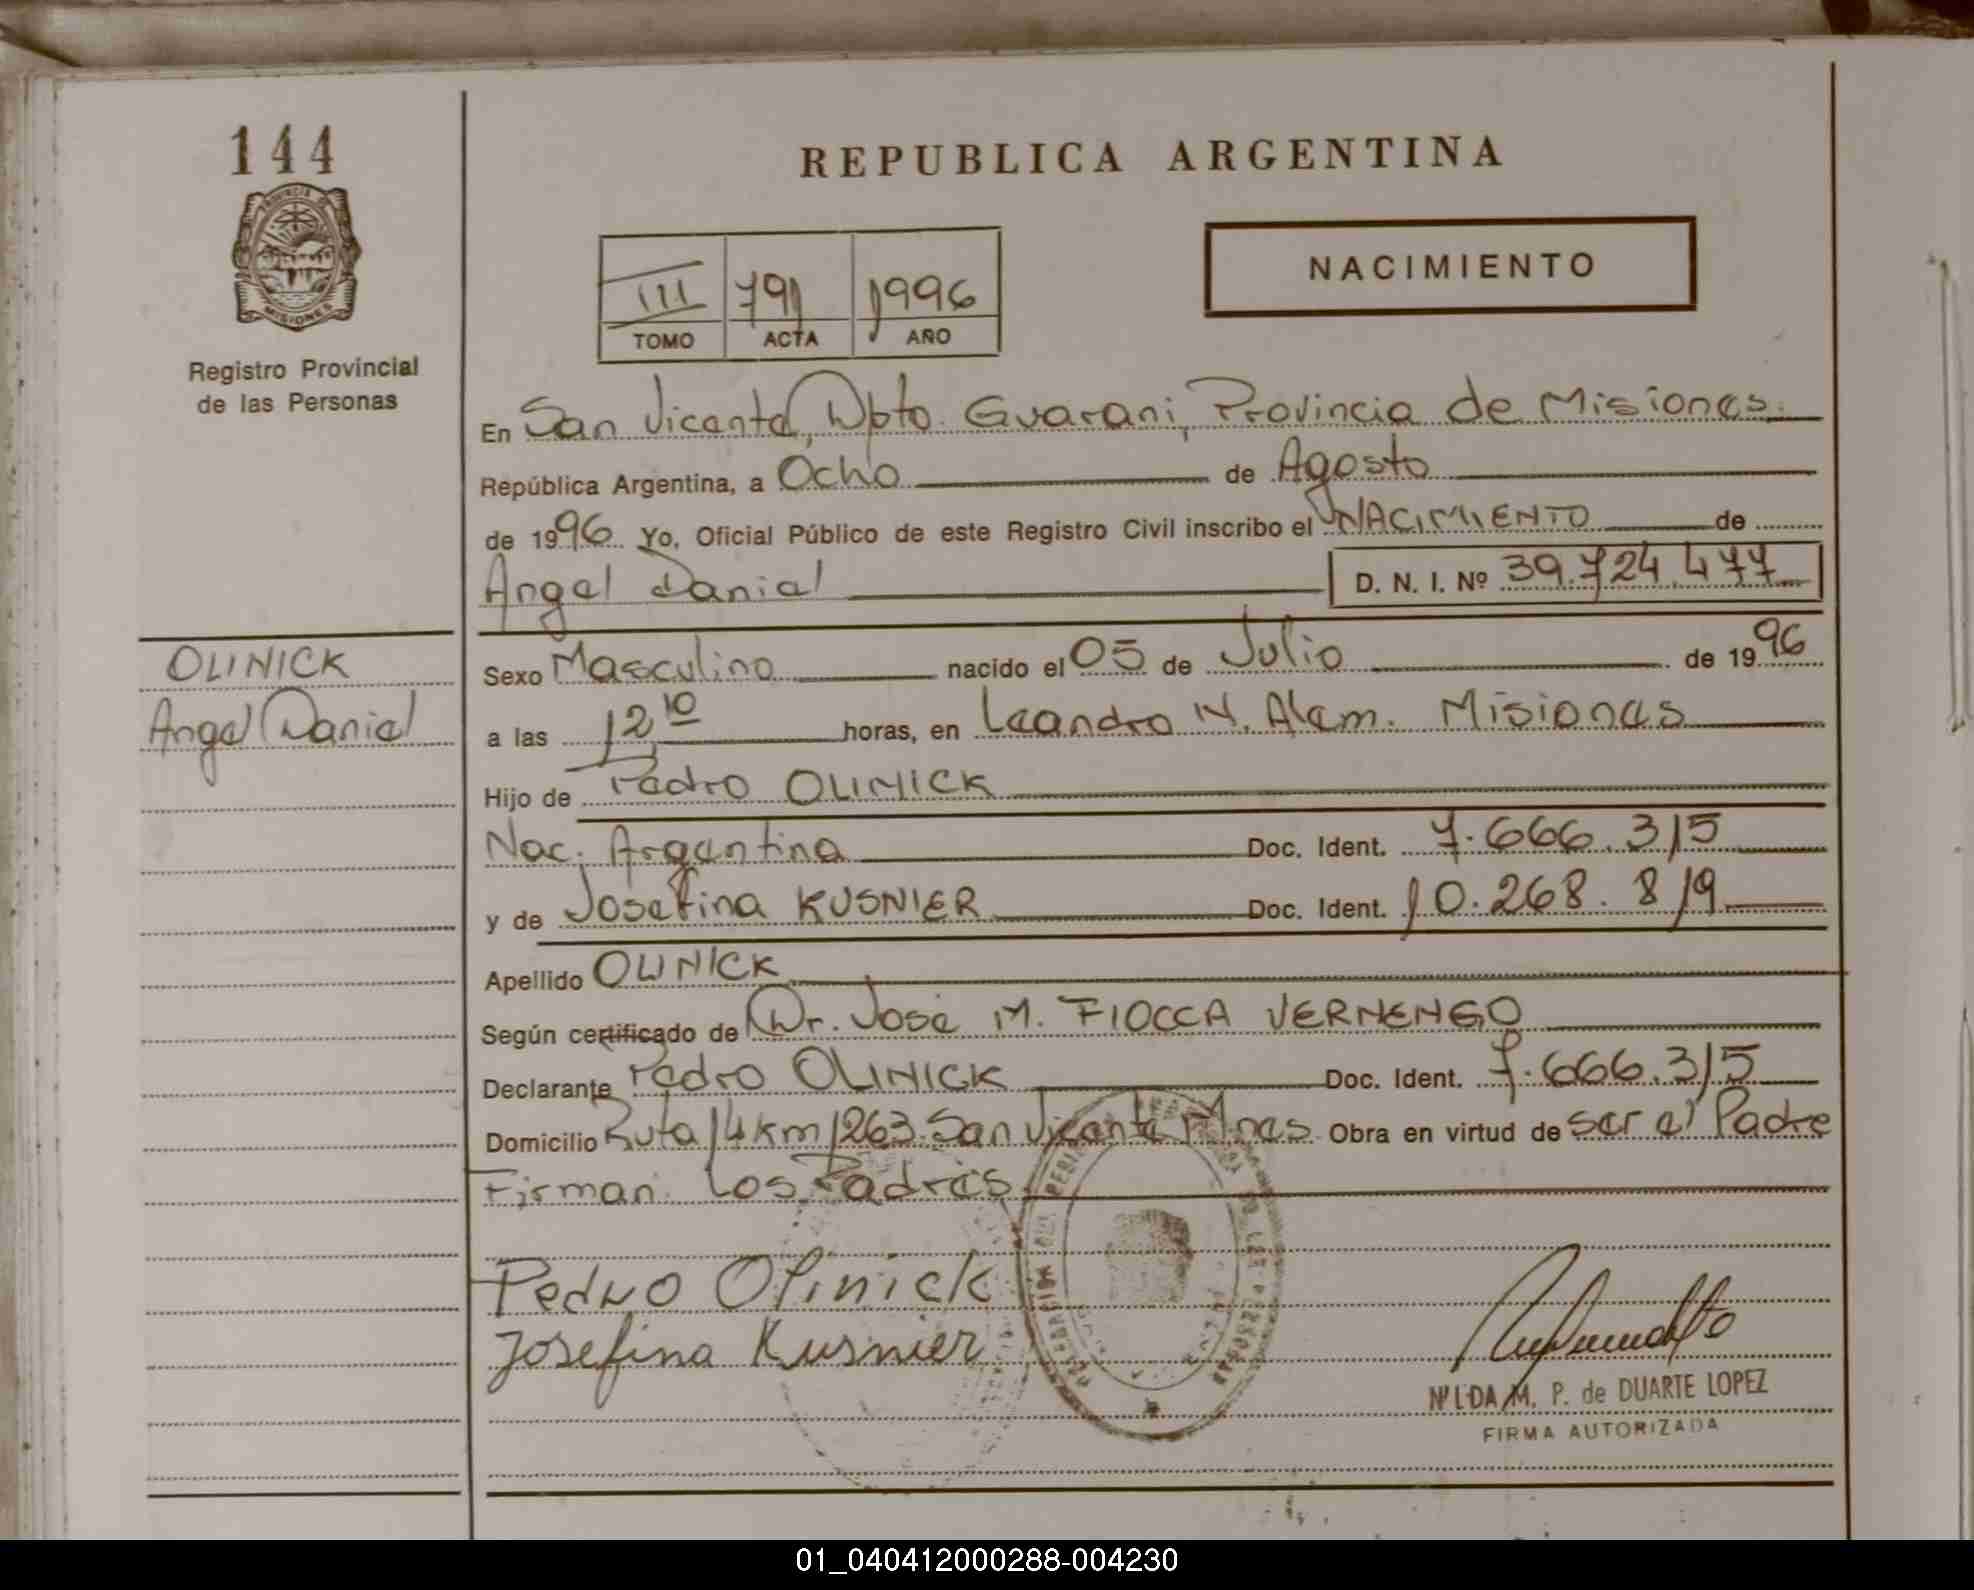 144
PROVINCIA DE
MISIONES
Registro Provincial
de las Personas
OLINICK
Angel Daniel
REPUBLICA ARGENTINA
NACIMIENTO
III 791 1996
TOMO ACTA AÑO
En San Vicente, Dpto. Guarani, Provincia de Misiones.
República Argentina, a Ocho de Agosto
de 1996 Yo, Oficial Público de este Registro Civil inscribo el NACIMIENTO de
Angel Daniel D. N. I. Nº 39.724.477
Sexo Masculino nacido el 05 de Julio de 1996
a las 12 10 horas, en Leandro N. Alem. Misiones
Hijo de Pedro OLINICK
Nac. Argentina Doc. Ident. 7.666.315
y de Josefina KUSNIER Doc. Ident. 10.268.819
Apellido OLINICK
Según certificado de Dr. José M. FIOCCA VERNENGO
Declarante Pedro OLINICK Doc. Ident. 7.666.315
Domicilio Ruta 14 km 1263. San Vicente Mnes. Obra en virtud de ser el Padre
Firman los Padres
Pedro Olinick
Josefina Kusnier
NILDA M. P. de DUARTE LOPEZ
FIRMA AUTORIZADA
01_040412000288-004230